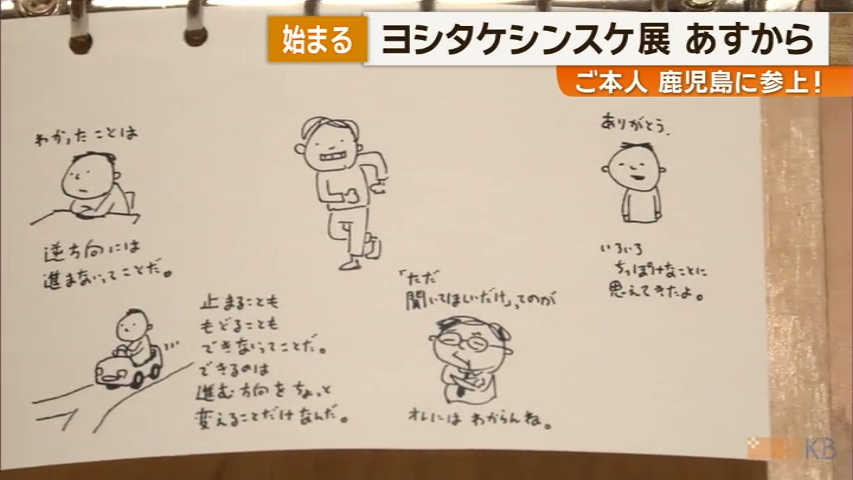 始まる
ヨシタケシンスケ展 あすから
ご本人 鹿児島に参上!
わかったことは
逆方向には
進まないってことだ。
止まることも
もどることも
できないってことだ。
できるのは
進む方向をちょっと
変えることだけなんだ。
「ただ
聞いてほしいだけ」ってのが
オレにはわからんね。
ありがとう。
いろいろ
ちっぽけなことに
思えてきたよ。
KB